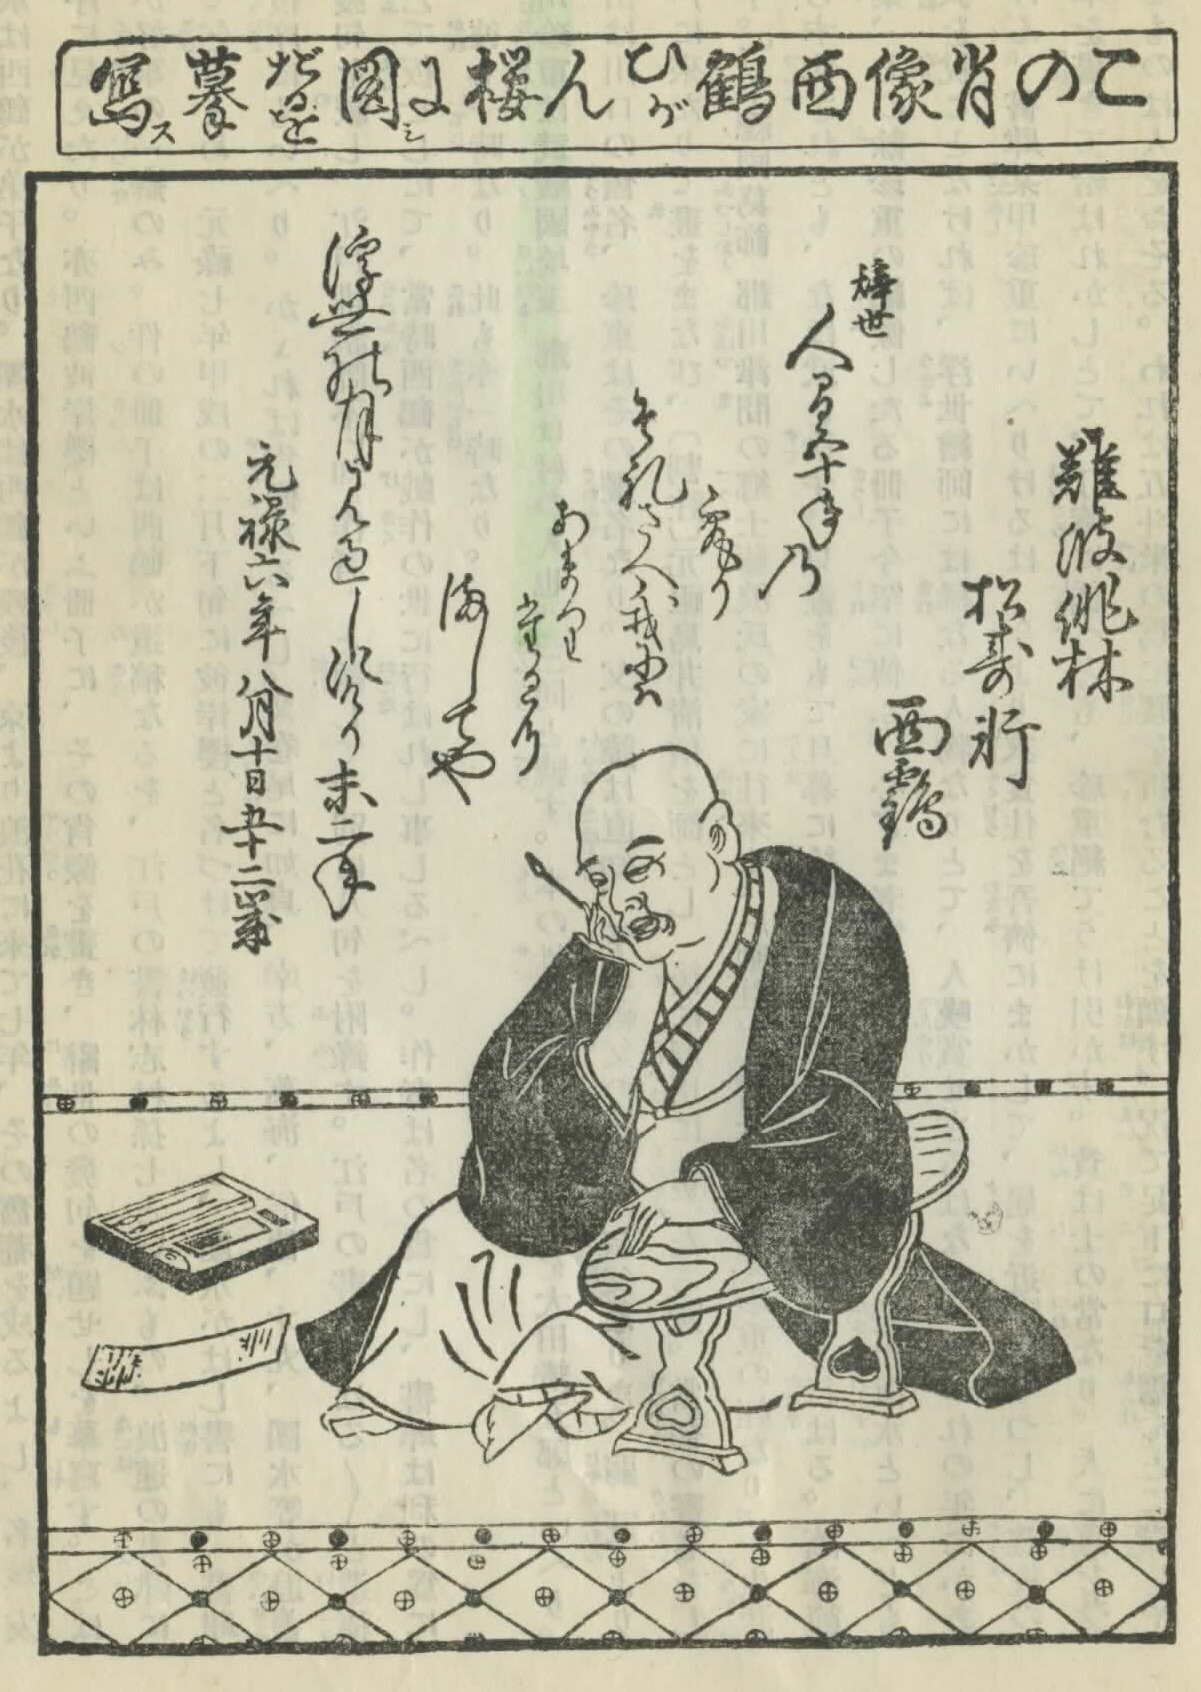 この肖像西鶴ひがん桜に圖シたるを摹寫ス
難波俳林
松寿軒
西鶴
辞世
人間五十年乃
究り
それさへ我には
あまり
たるに
ましてや
浮世の月見過しにけり末二年
元禄六年八月十日五十二歳